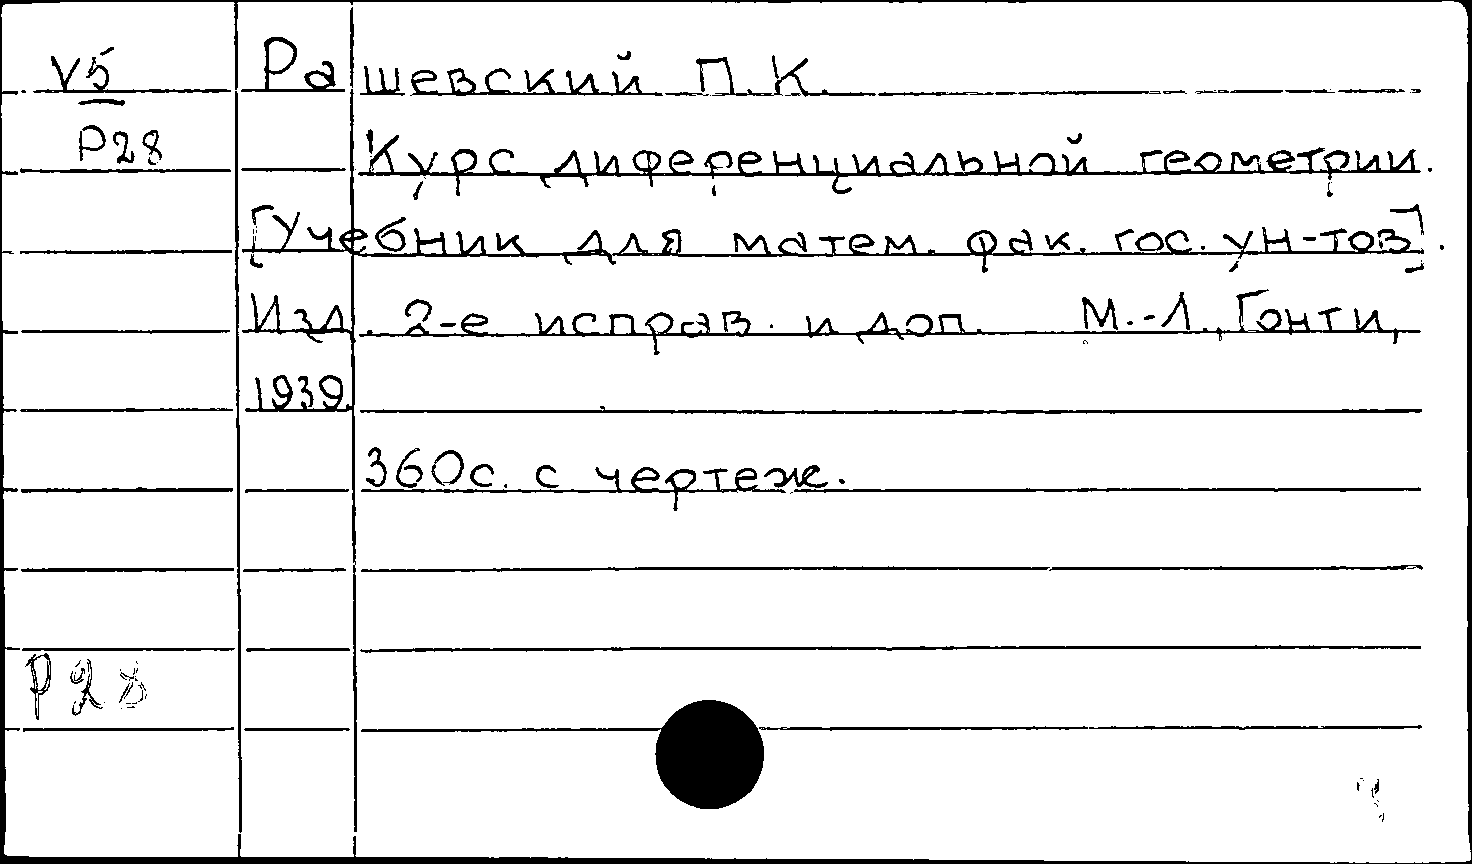 V5 Рашевский П.К.
Р28 Курс диференциальной геометрии.
[Учебник для матем. фак. гос. ун-тов].
Изд. 2-е исправ. и доп. М.-Л., Гонти,
1939.
360с. с чертеж.
Р28